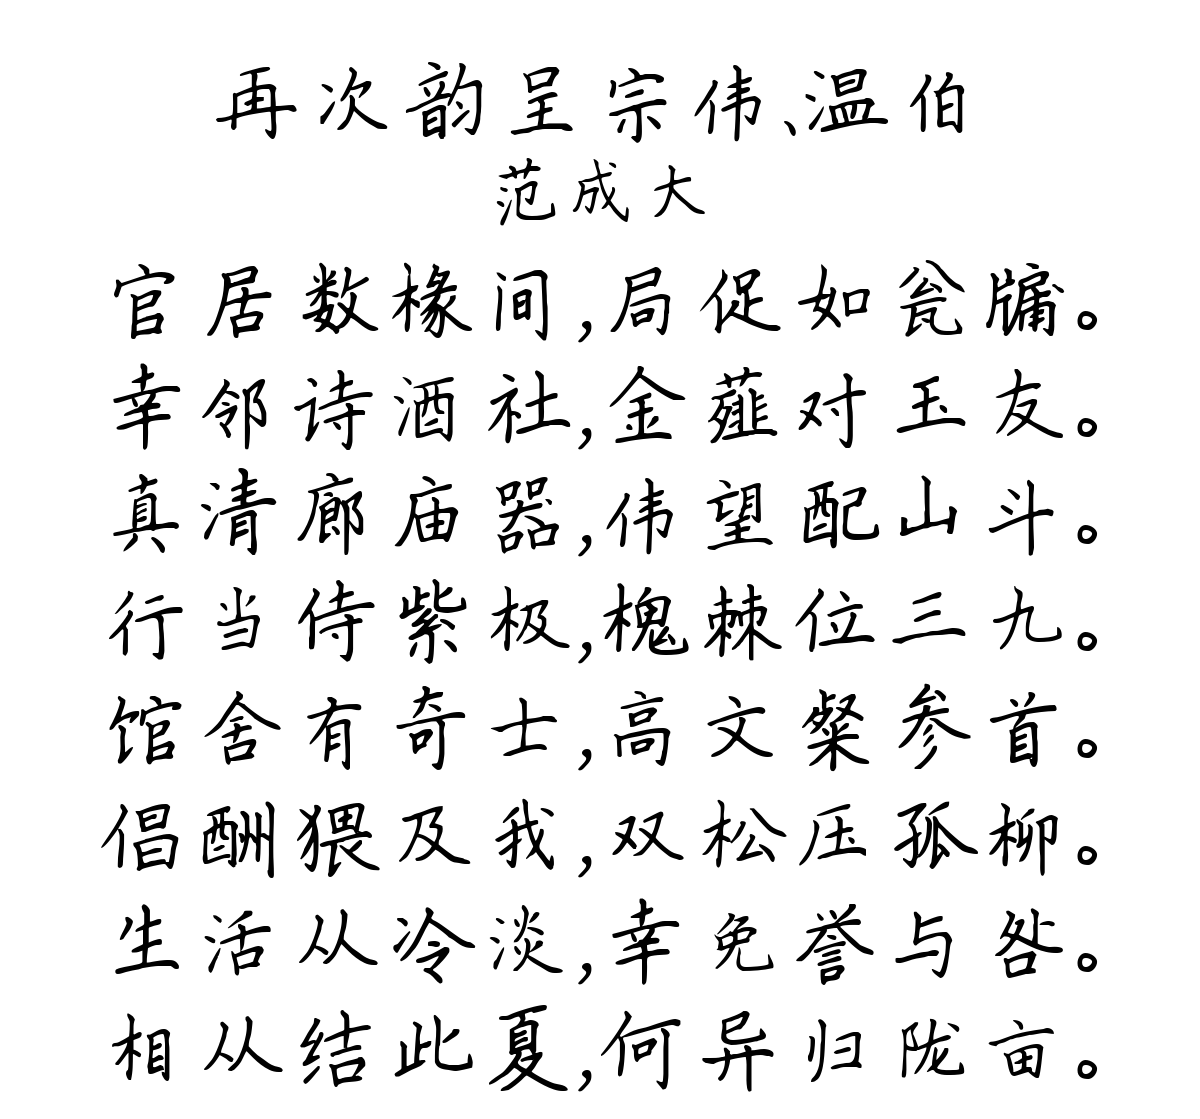 再次韵呈宗伟、温伯
范成大
官居数椽间,局促如瓮牖。
幸邻诗酒社,金薤对玉友。
真清廊庙器,伟望配山斗。
行当侍紫极,槐棘位三九。
馆舍有奇士,高文粲参首。
倡酬猥及我,双松压孤柳。
生活从冷淡,幸免誉与咎。
相从结此夏,何异归陇亩。